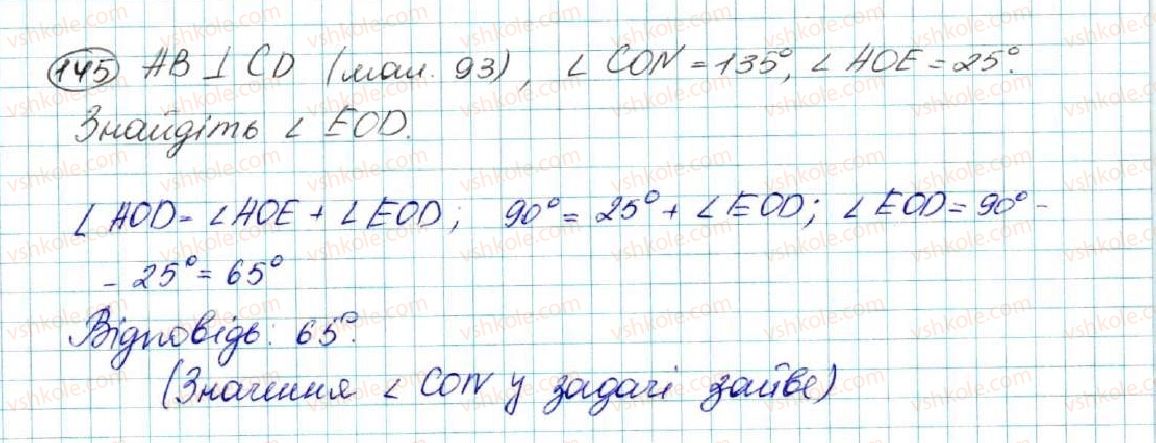 145 AB ⊥ CD (мал. 93), ∠ CON = 135°, ∠ AOE = 25°.
Знайдіть ∠ EOD.
∠ AOD = ∠ AOE + ∠ EOD; 90° = 25° + ∠ EOD; ∠ EOD = 90° -
- 25° = 65°
Відповідь: 65°.
(Значення ∠ CON у задачі зайве)